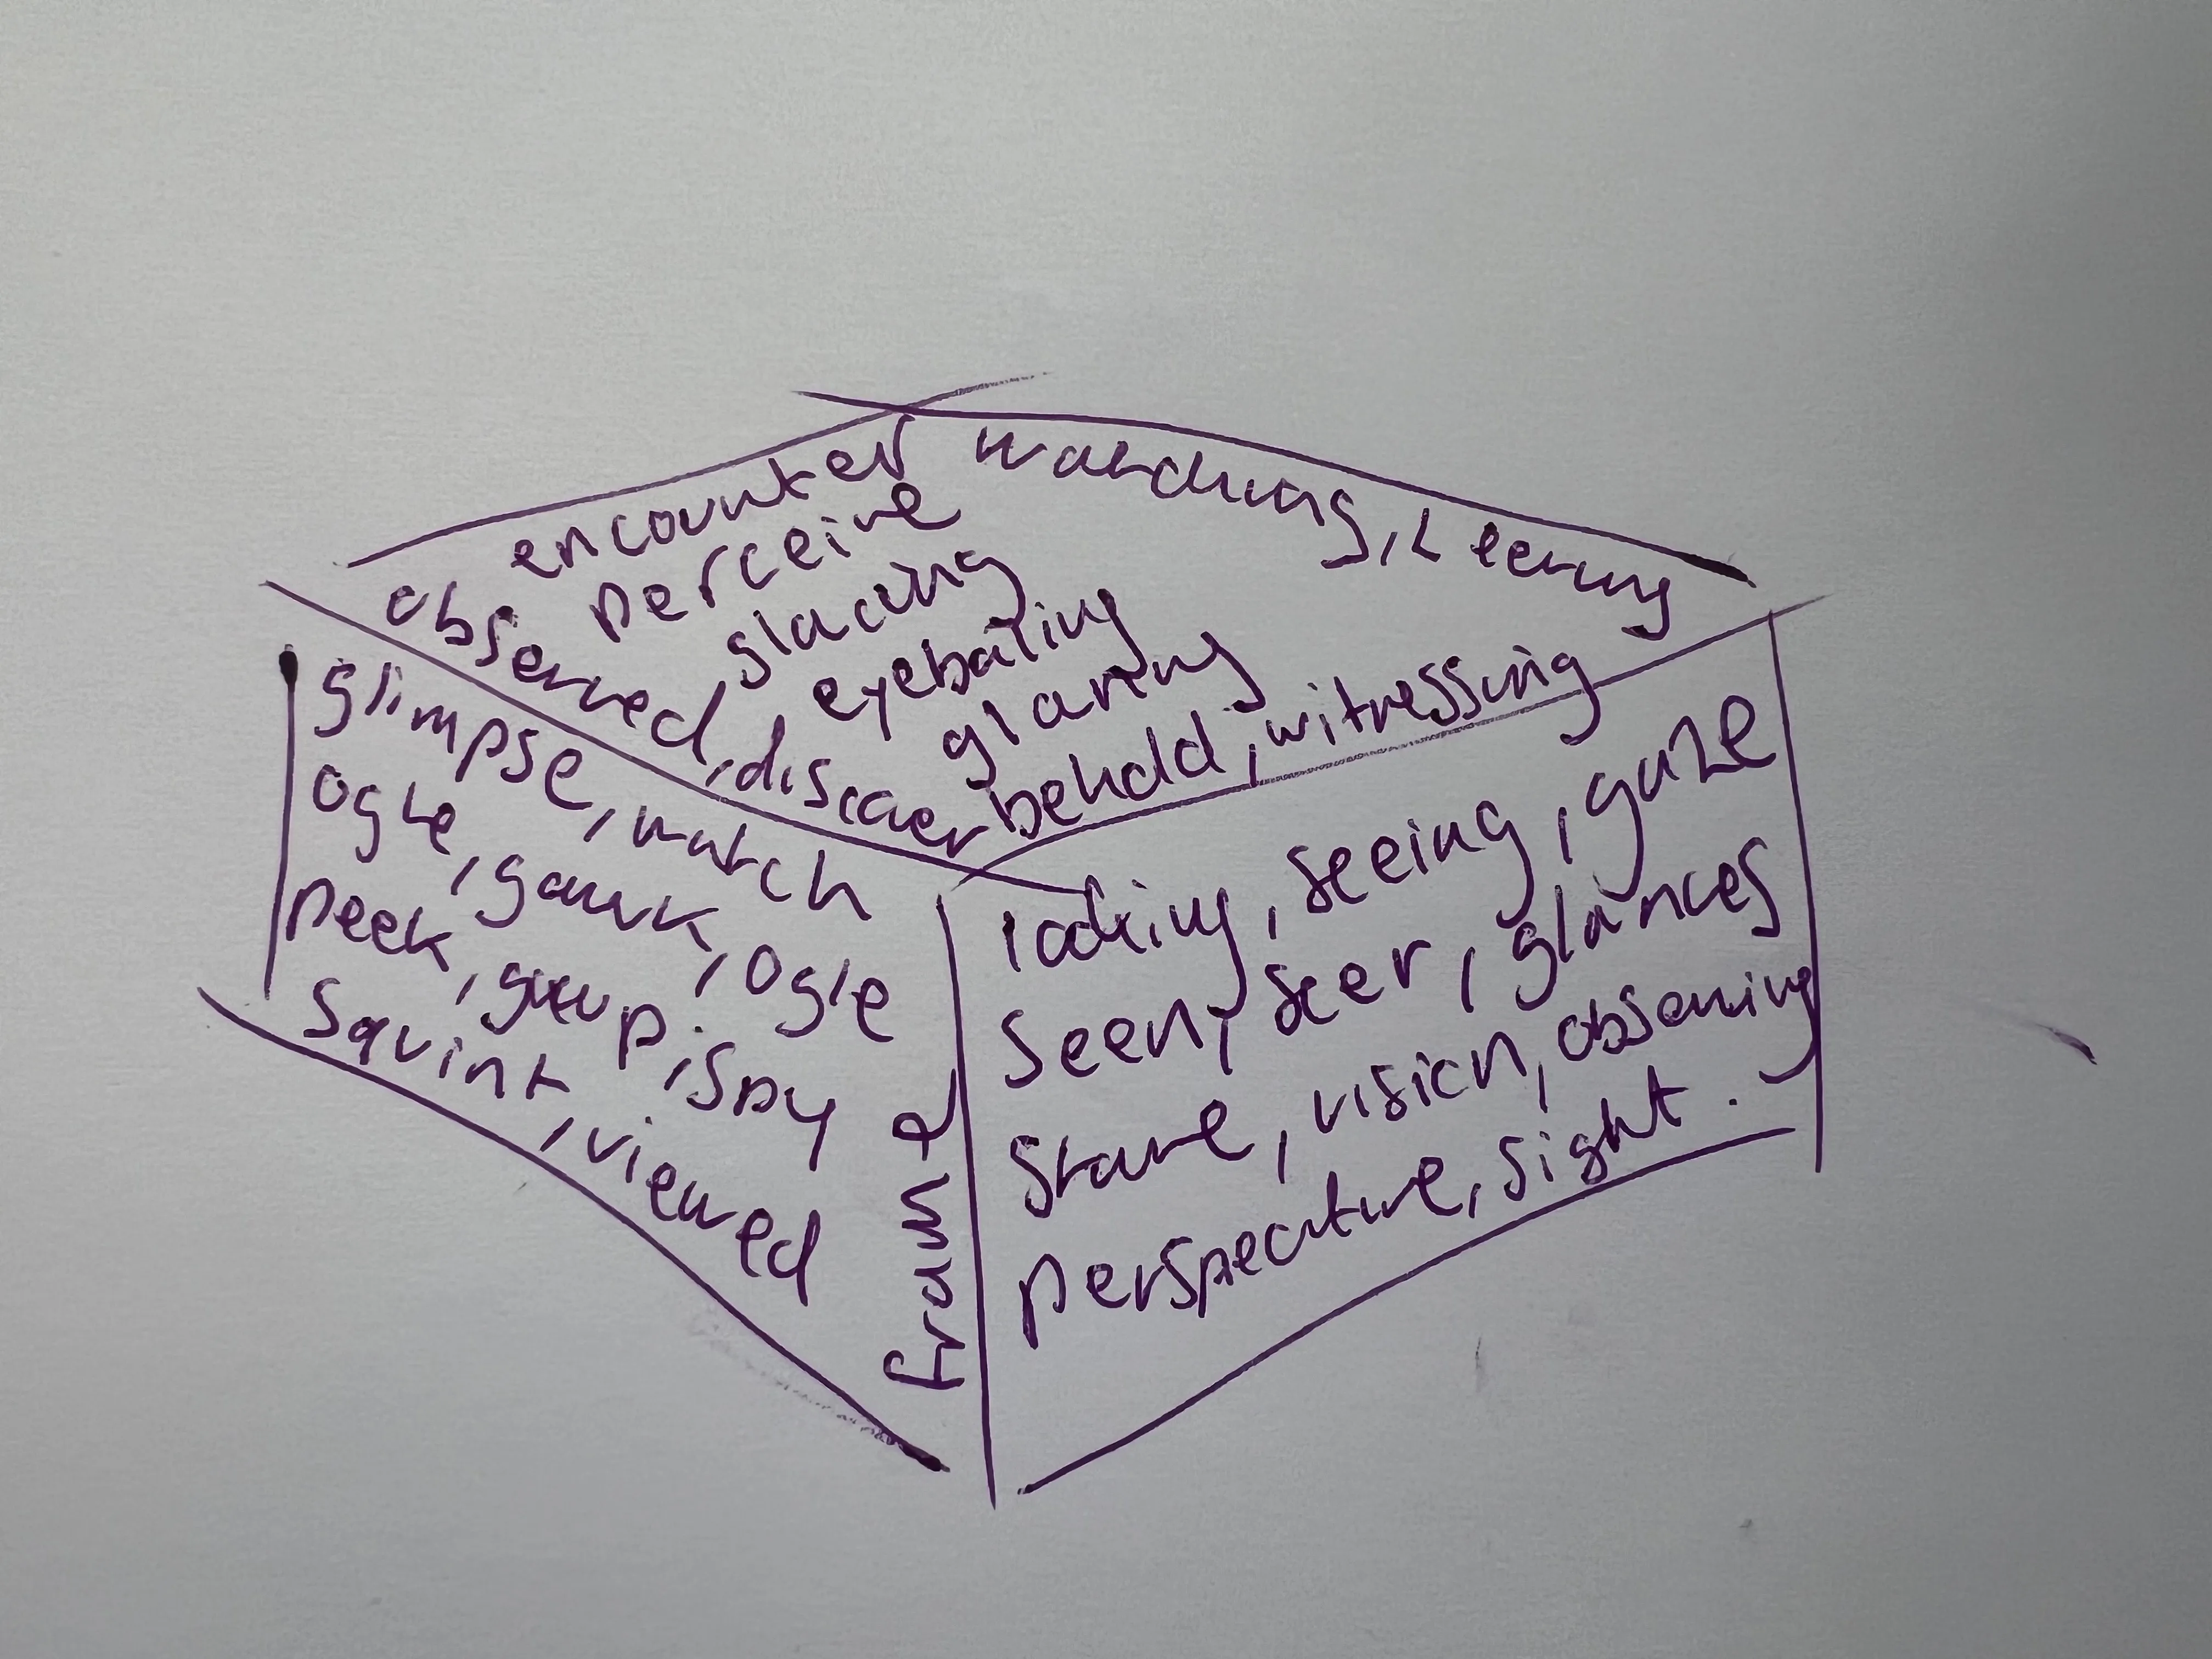 encounter
perceive
glacing
eyebaling
glaring
watching, Leering
observed, discover
behold, witnessing
glimpse, watch
ogle, gawk, ogle
peek, gawp, spy
squint, viewed
frame
looking, seeing, gaze
seen, seer, glances
stare, vision, observing
perspective, sight.